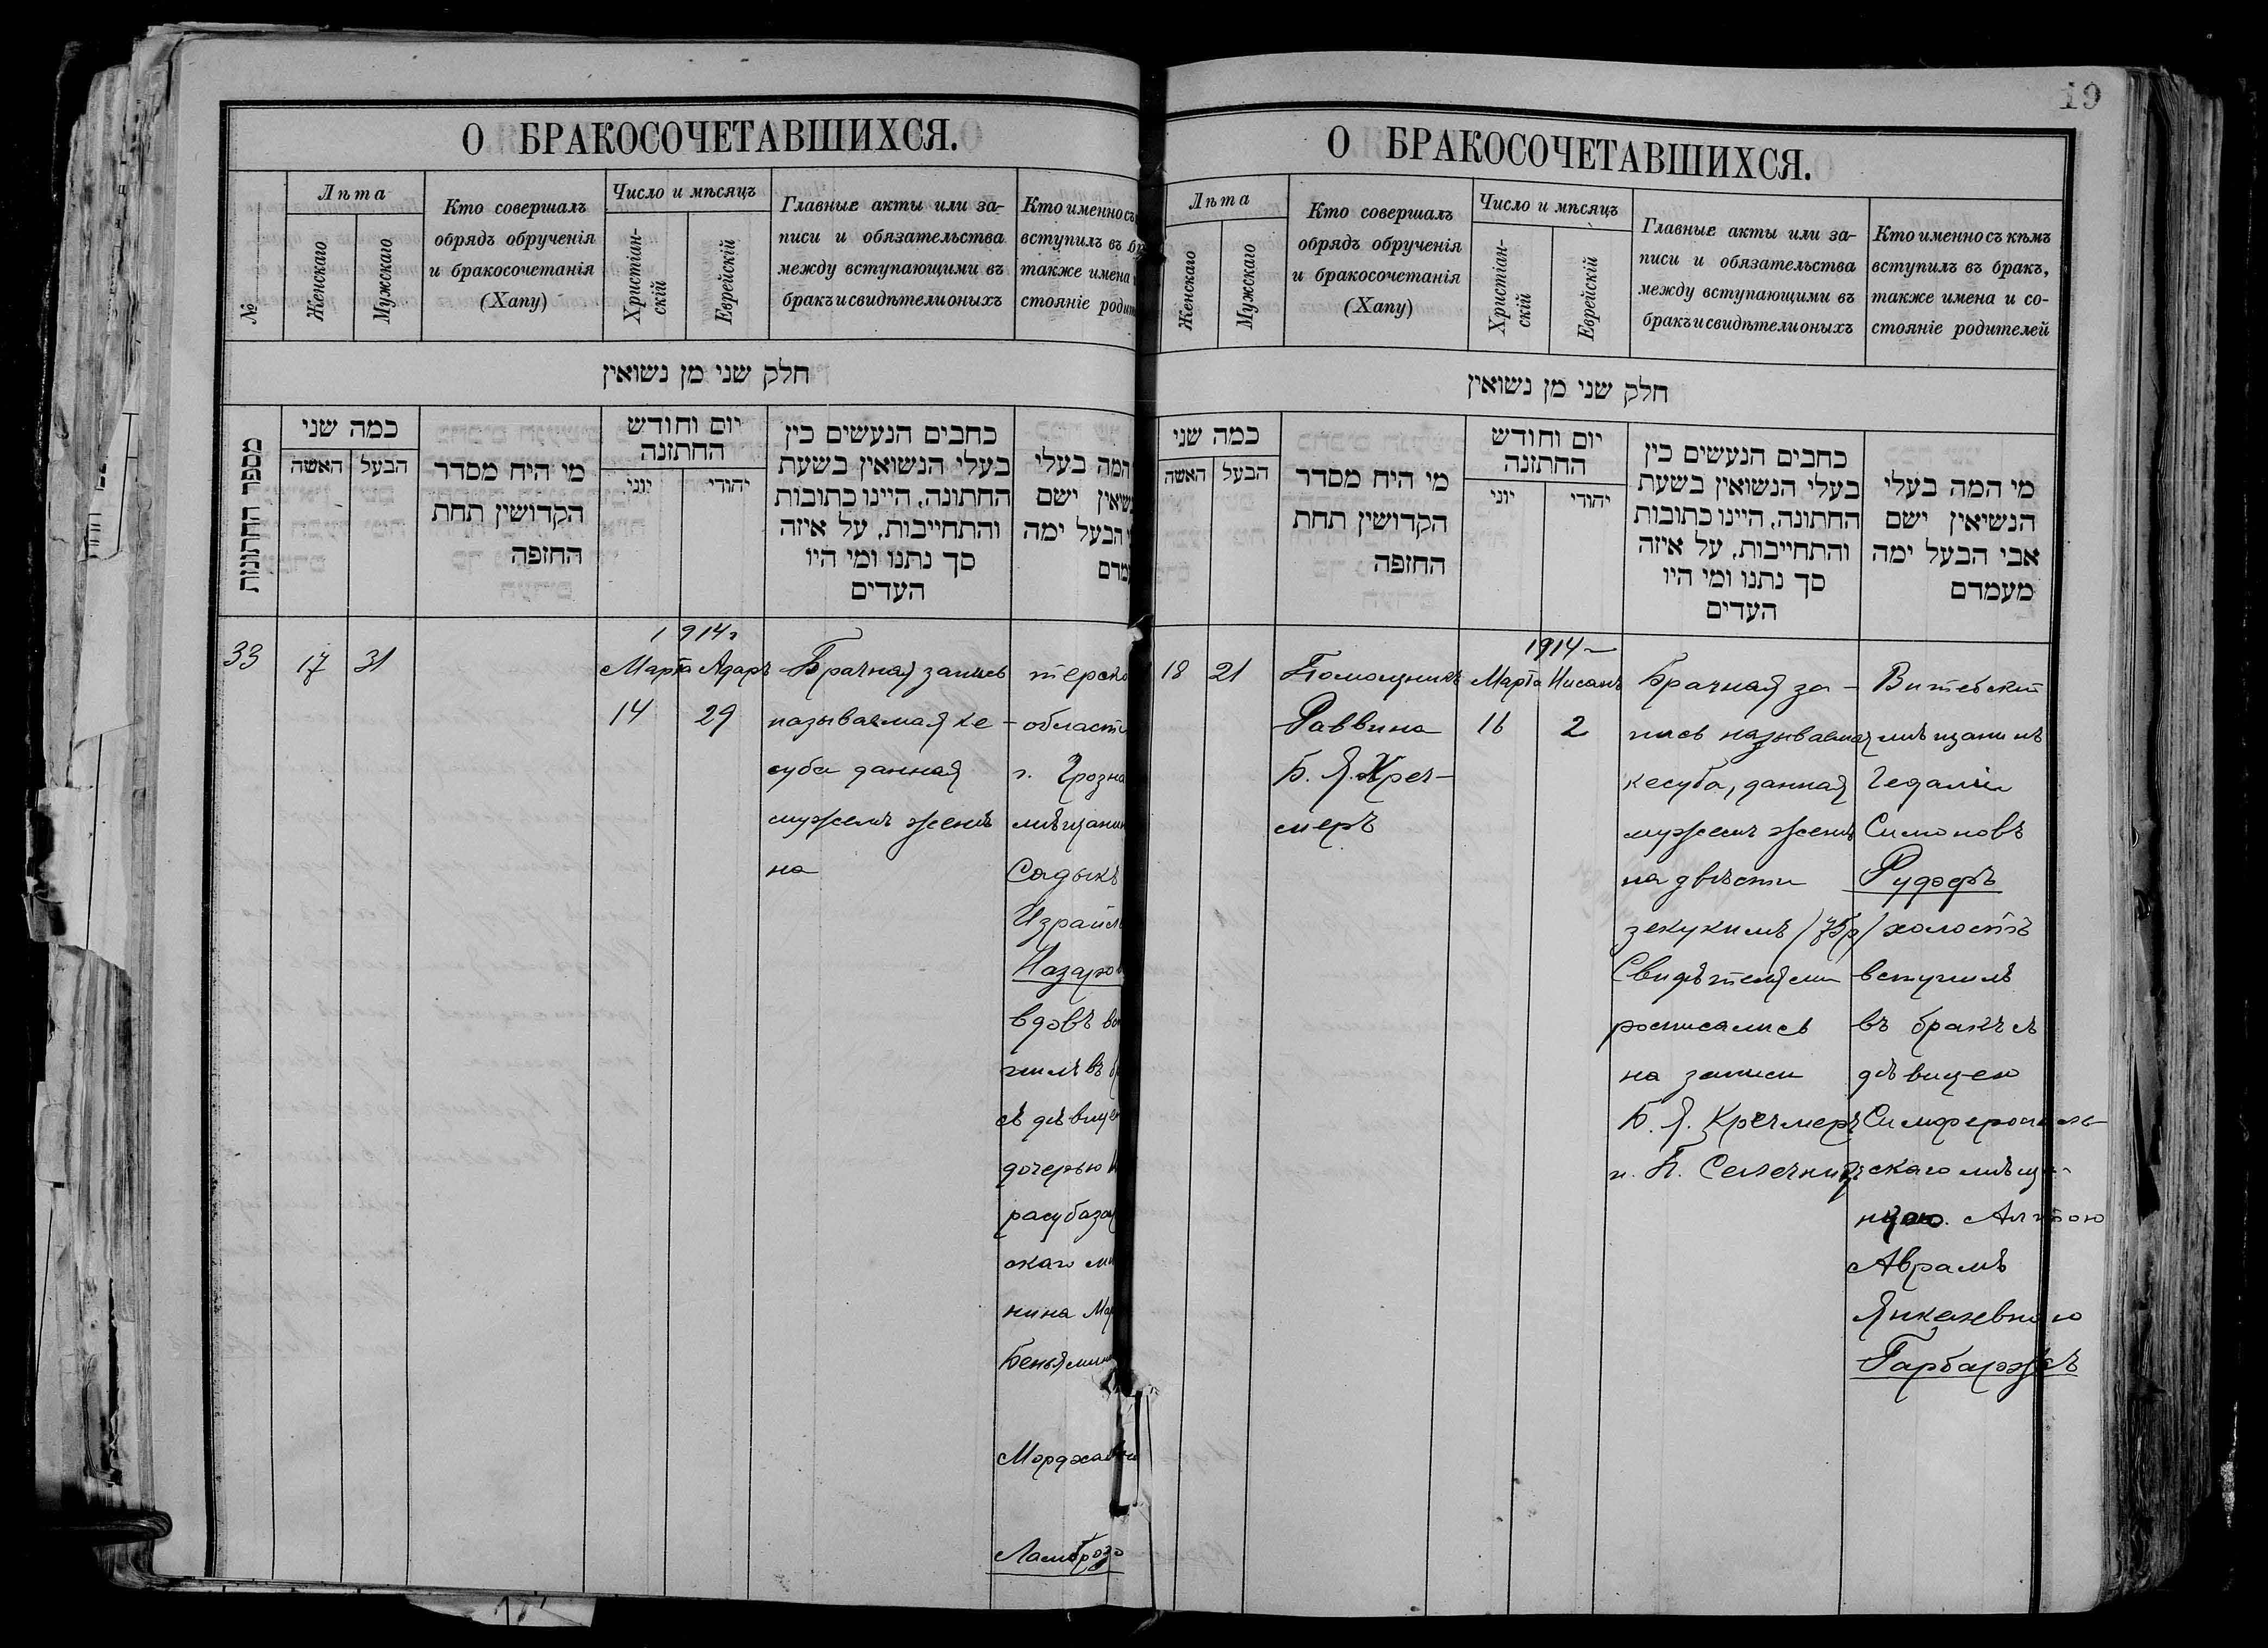 О БРАКОСОЧЕТАВШИХСЯ.
№
Лѣта
Женскаго
Мужскаго
Кто совершалъ
обрядъ обрученія
и бракосочетанія
(Хапу)
Число и мѣсяцъ
Христіан-
скій
Еврейскій
Главные акты или за-
писи и обязательства
между вступающими въ
бракъ и свидѣтели оныхъ
Кто именно съ
вступилъ въ бр
также имена и
стояніе родит
חלק שני מן נשואין
מספר החתונות
כמה שני
האשה
הבעל
מי היח מסדר
הקדושין תחת
החופה
יום וחודש
החתונה
יוני
יהודי
כחבים הנעשים כין
בעלי הנשואין בשעת
החתונה, היינו כתובות
והתחייבות, על איזה
סך נתנו ומי היו
העדים
המה בעלי
נשיאין ישם
הבעל ימה
מדם
33
17
31
1914г
Марта Адаръ
14 29
Брачная запись
называемая ке-
суба данная
мужемъ женѣ
на
терско
области
г. Грозна
мѣщанин
Садыкъ
Израил
Назаро
вдовъ вс
пилъ въ б
съ дѣвице
дочерью
расубаза
скаго мѣ
нина Ма
Беньямин
Мордхаев
Ламброзо
19
О БРАКОСОЧЕТАВШИХСЯ.
Лѣта
Женскаго
Мужскаго
Кто совершалъ
обрядъ обрученія
и бракосочетанія
(Хапу)
Число и мѣсяцъ
Христіан-
скій
Еврейскій
Главные акты или за-
писи и обязательства
между вступающими въ
бракъ и свидѣтели оныхъ
Кто именно съ кѣмъ
вступилъ въ бракъ,
также имена и со-
стояніе родителей
חלק שני מן נשואין
כמה שני
האשה
הבעל
מי היח מסדר
הקדושין תחת
החופה
יום וחודש
החתונה
יוני
יהודי
כחבים הנעשים כין
בעלי הנשואין בשעת
החתונה, היינו כתובות
והתחייבות, על איזה
סך נתנו ומי היו
העדים
מי המה בעלי
הנשיאין ישם
אבי הבעל ימה
מעמדם
18
21
Помощникъ
Раввина
Б. Я. Креч-
меръ
1914
Марта Нисанъ
16 2
Брачная за-
пись называемая
кесуба, данная
мужемъ женѣ
на двѣсти
зекукимъ /75р/
Свидѣтелями
росписались
на записи
Б. Я. Кречмеръ
и П.
Витебскій
мѣщанинъ
Гедалія
Симоновъ
Рудэръ
холостъ
вступилъ
въ бракъ съ
дѣвицею
Симферополь-
скаго мѣща-
Аврамъ
Янкелевною